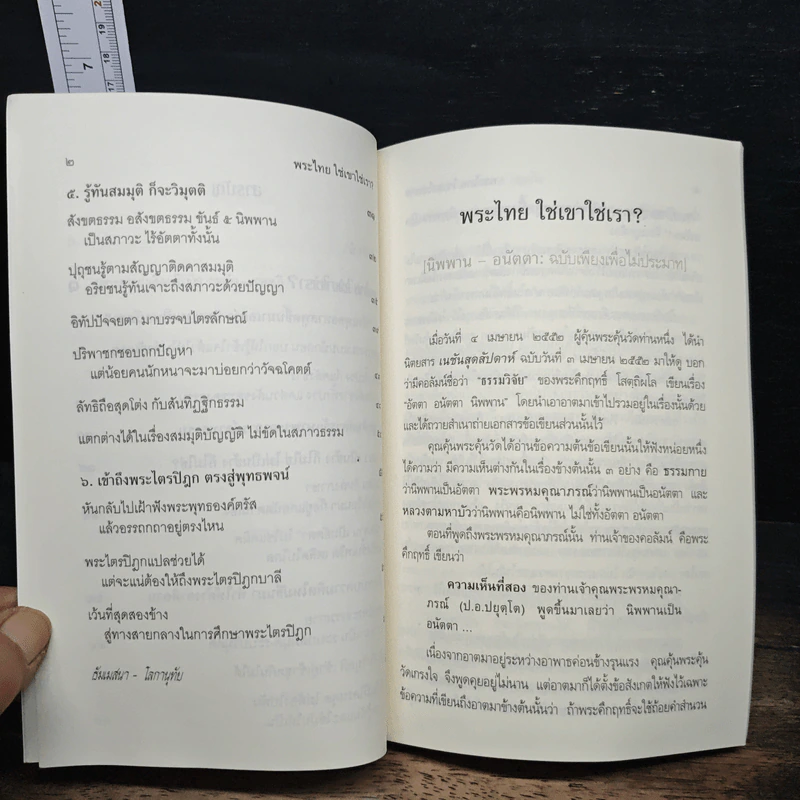 ๒
พระไทย ใช่เขาใช่เรา?
๕. รู้ทันสมมุติ ก็จะวิมุตติ
สังขตธรรม อสังขตธรรม ขันธ์ ๕ นิพพาน
เป็นสภาวะ ไร้อัตตาทั้งนั้น
ปุถุชนรู้ตามสัญญาติดคาสมมุติ
อริยชนรู้ทันเจาะถึงสภาวะด้วยปัญญา
อิทัปปัจจยตา มาบรรจบไตรลักษณ์
ปริพาชกชอบถกปัญหา
แต่น้อยคนนักหนาจะมาบ่อยกว่าวัจฉโคตต์
ลัทธิถือสุดโต่ง กับสันทิฏฐิกธรรม
แตกต่างได้ในเรื่องสมมุติบัญญัติ ไม่ขัดในสภาวธรรม
๖. เข้าถึงพระไตรปิฎก ตรงสู่พุทธพจน์
หันกลับไปเฝ้าฟังพระพุทธองค์ตรัส
แล้วอรรถกถาอยู่ตรงไหน
พระไตรปิฎกแปลช่วยได้
แต่จะแน่ต้องให้ถึงพระไตรปิฎกบาลี
เว้นที่สุดสองข้าง
สู่ทางสายกลางในการศึกษาพระไตรปิฎก
ธัมเมสนา - โลกานุทัย
17 18 19
7
พระไทย ใช่เขาใช่เรา?
[นิพพาน – อนัตตา: ฉบับเพียงเพื่อไม่ประมาท]
เมื่อวันที่ ๔ เมษายน ๒๕๕๒ ผู้คุ้นพระคุ้นวัดท่านหนึ่ง ได้นำ
นิตยสาร เนชั่นสุดสัปดาห์ ฉบับวันที่ ๓ เมษายน ๒๕๕๒ มาให้ดู บอก
ว่ามีคอลัมน์ชื่อว่า “ธรรมวิจัย” ของพระคึกฤทธิ์ โสตฺถิผโล เขียนเรื่อง
“อัตตา อนัตตา นิพพาน” โดยนำเอาอาตมาเข้าไปรวมอยู่ในเรื่องนั้นด้วย
และได้ถวายสำเนาถ่ายเอกสารข้อเขียนส่วนนั้นไว้
คุณคุ้นพระคุ้นวัดได้อ่านข้อความต้นข้อเขียนนั้นให้ฟังหน่อยหนึ่ง
ได้ความว่า มีความเห็นต่างกันในเรื่องข้างต้นนั้น ๓ อย่าง คือ ธรรมกาย
ว่านิพพานเป็นอัตตา พระพรหมคุณาภรณ์ว่านิพพานเป็นอนัตตา และ
หลวงตามหาบัวว่านิพพานคือนิพพาน ไม่ใช่ทั้งอัตตา อนัตตา
ตอนที่พูดถึงพระพรหมคุณาภรณ์นั้น ท่านเจ้าของคอลัมน์ คือพระ
คึกฤทธิ์ เขียนว่า
ความเห็นที่สอง ของท่านเจ้าคุณพระพรหมคุณา-
ภรณ์ (ป.อ.ปยุตฺโต) พูดขึ้นมาเลยว่า นิพพานเป็น
อนัตตา ...
เนื่องจากอาตมาอยู่ระหว่างอาพาธค่อนข้างรุนแรง คุณคุ้นพระคุ้น
วัดเกรงใจ จึงพูดคุยอยู่ไม่นาน แต่อาตมาก็ได้ตั้งข้อสังเกตให้ฟังไว้เฉพาะ
ข้อความที่เขียนถึงอาตมาข้างต้นนั้นว่า ถ้าพระคึกฤทธิ์จะใช้ถ้อยคำสำนวน